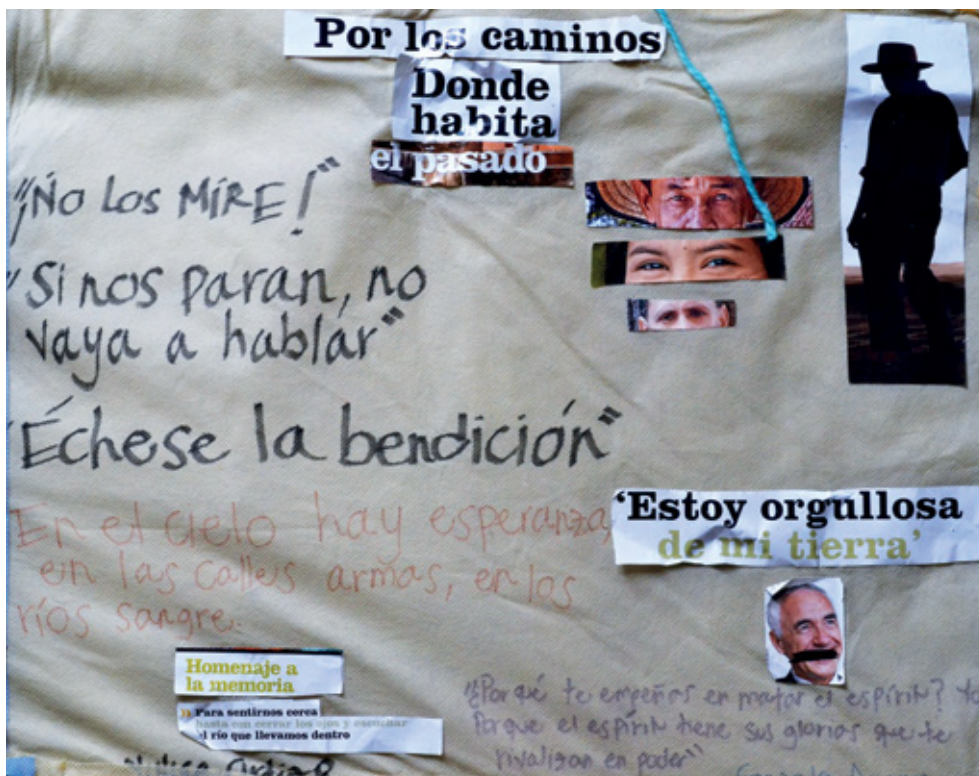 Por los caminos
Donde
habita
el pasado
"¡No Los MIRE!"
"Si nos paran, no
vaya a hablar"
"Échese la bendición"
En el cielo hay esperanza,
en las calles armas, en los
ríos sangre.
'Estoy orgullosa
de mi tierra'
Homenaje a
la memoria
Para sentirnos cerca
basta con cerrar los ojos y escuchar
el río que llevamos dentro
"¿Por qué te empeñas en matar el espíritu?
Porque el espíritu tiene sus glorias que te
rivalizan en poder"